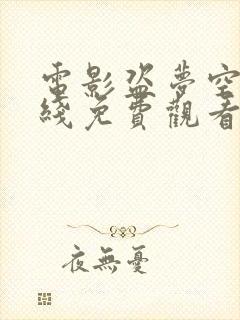 電影盜夢空
綫免費觀看
夜無憂